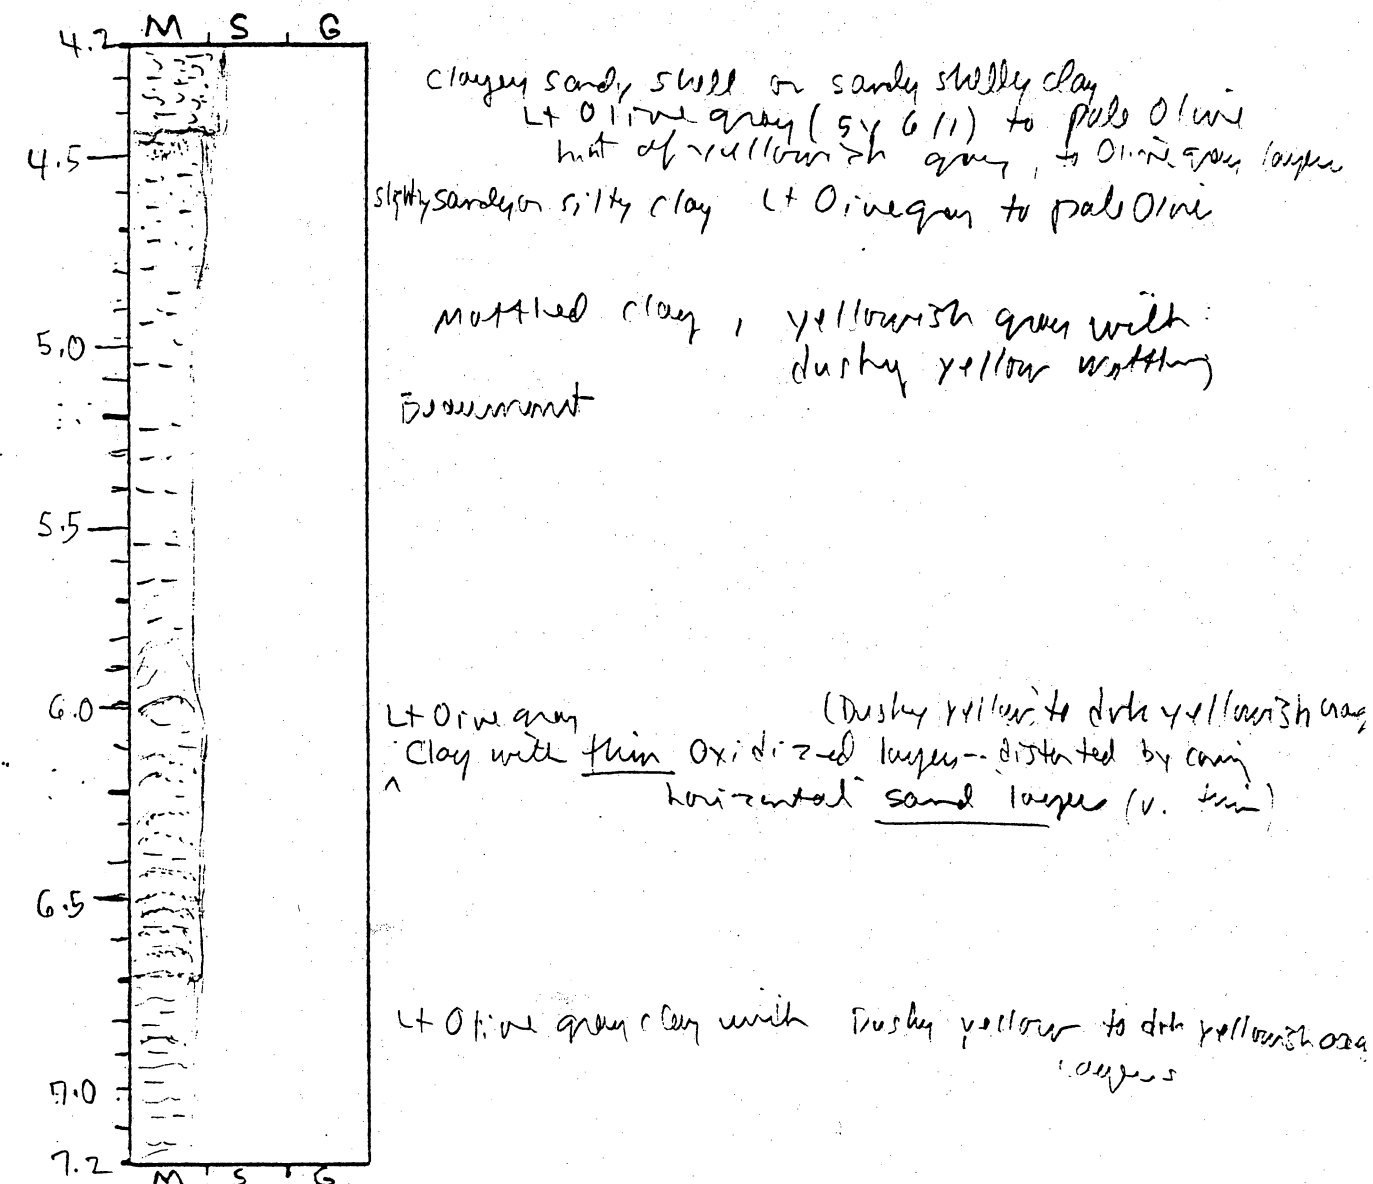 M S G
4.2
clayey sandy shell or sandy shelly clay
Lt Olive gray (5Y 6/1) to pale Olive
hint of yellowish gray, to Olive gray layers
4.5
slightly sandy or silty clay Lt Olive gray to pale Olive
Mottled clay, yellowish gray with
5.0
dusky yellow mottling
Beaumont
5.5
6.0
Lt Olive gray (Dusky yellow to drk yellowish orang
Clay with thin Oxidized layers -- distorted by coring
^
horizontal sand layers (v. thin)
6.5
Lt Olive gray clay with Dusky yellow to drk yellowish ora
layers
7.0
7.2
M S G